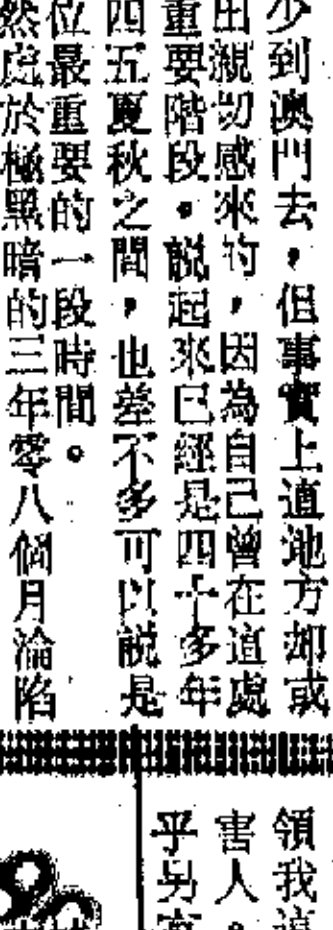 少到澳門去，但事實上這地方却或
出親切感來的，因為自己曾在這處
重要階段。說起來已經是四十多年
四五夏秋之間，也差不多可以說是
位最重要的一段時間。
然處於極黑暗的三年零八個月淪陷
領我這
害人。
乎另